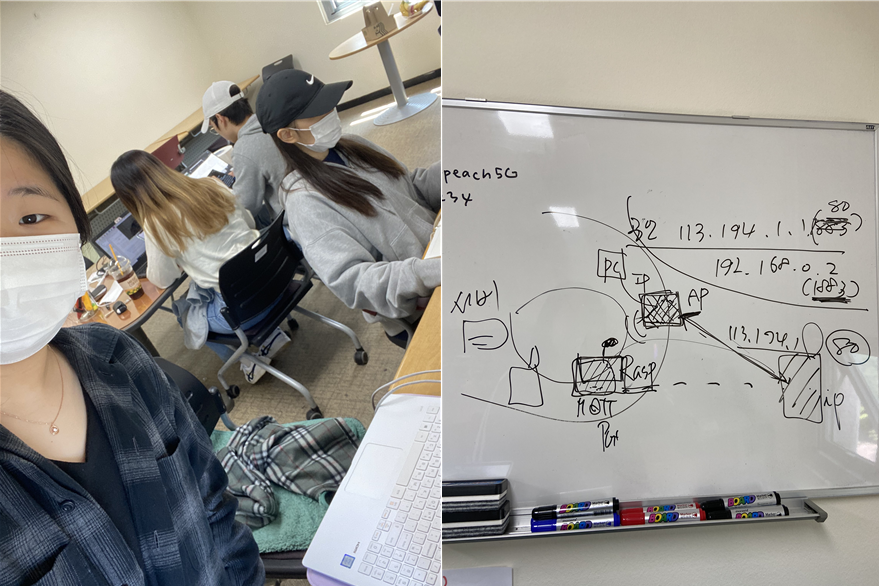 peach5G
234
80
113.194.1.1 (883)
192.168.0.2
(1883)
PC
IP
AP
서버
113.194.1
80
Rasp
MQTT
ip